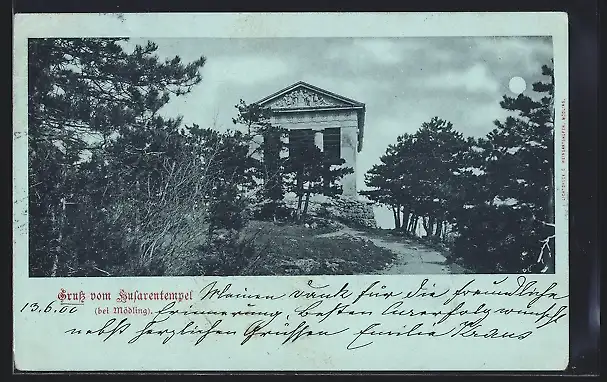 Gruß vom Husarentempel
(bei Mödling).
13.6.00
Meinen Dank für die freundliche
Erinnerung, besten Curerfolg wünscht
nebst herzlichen Grüssen Emilie Kraus